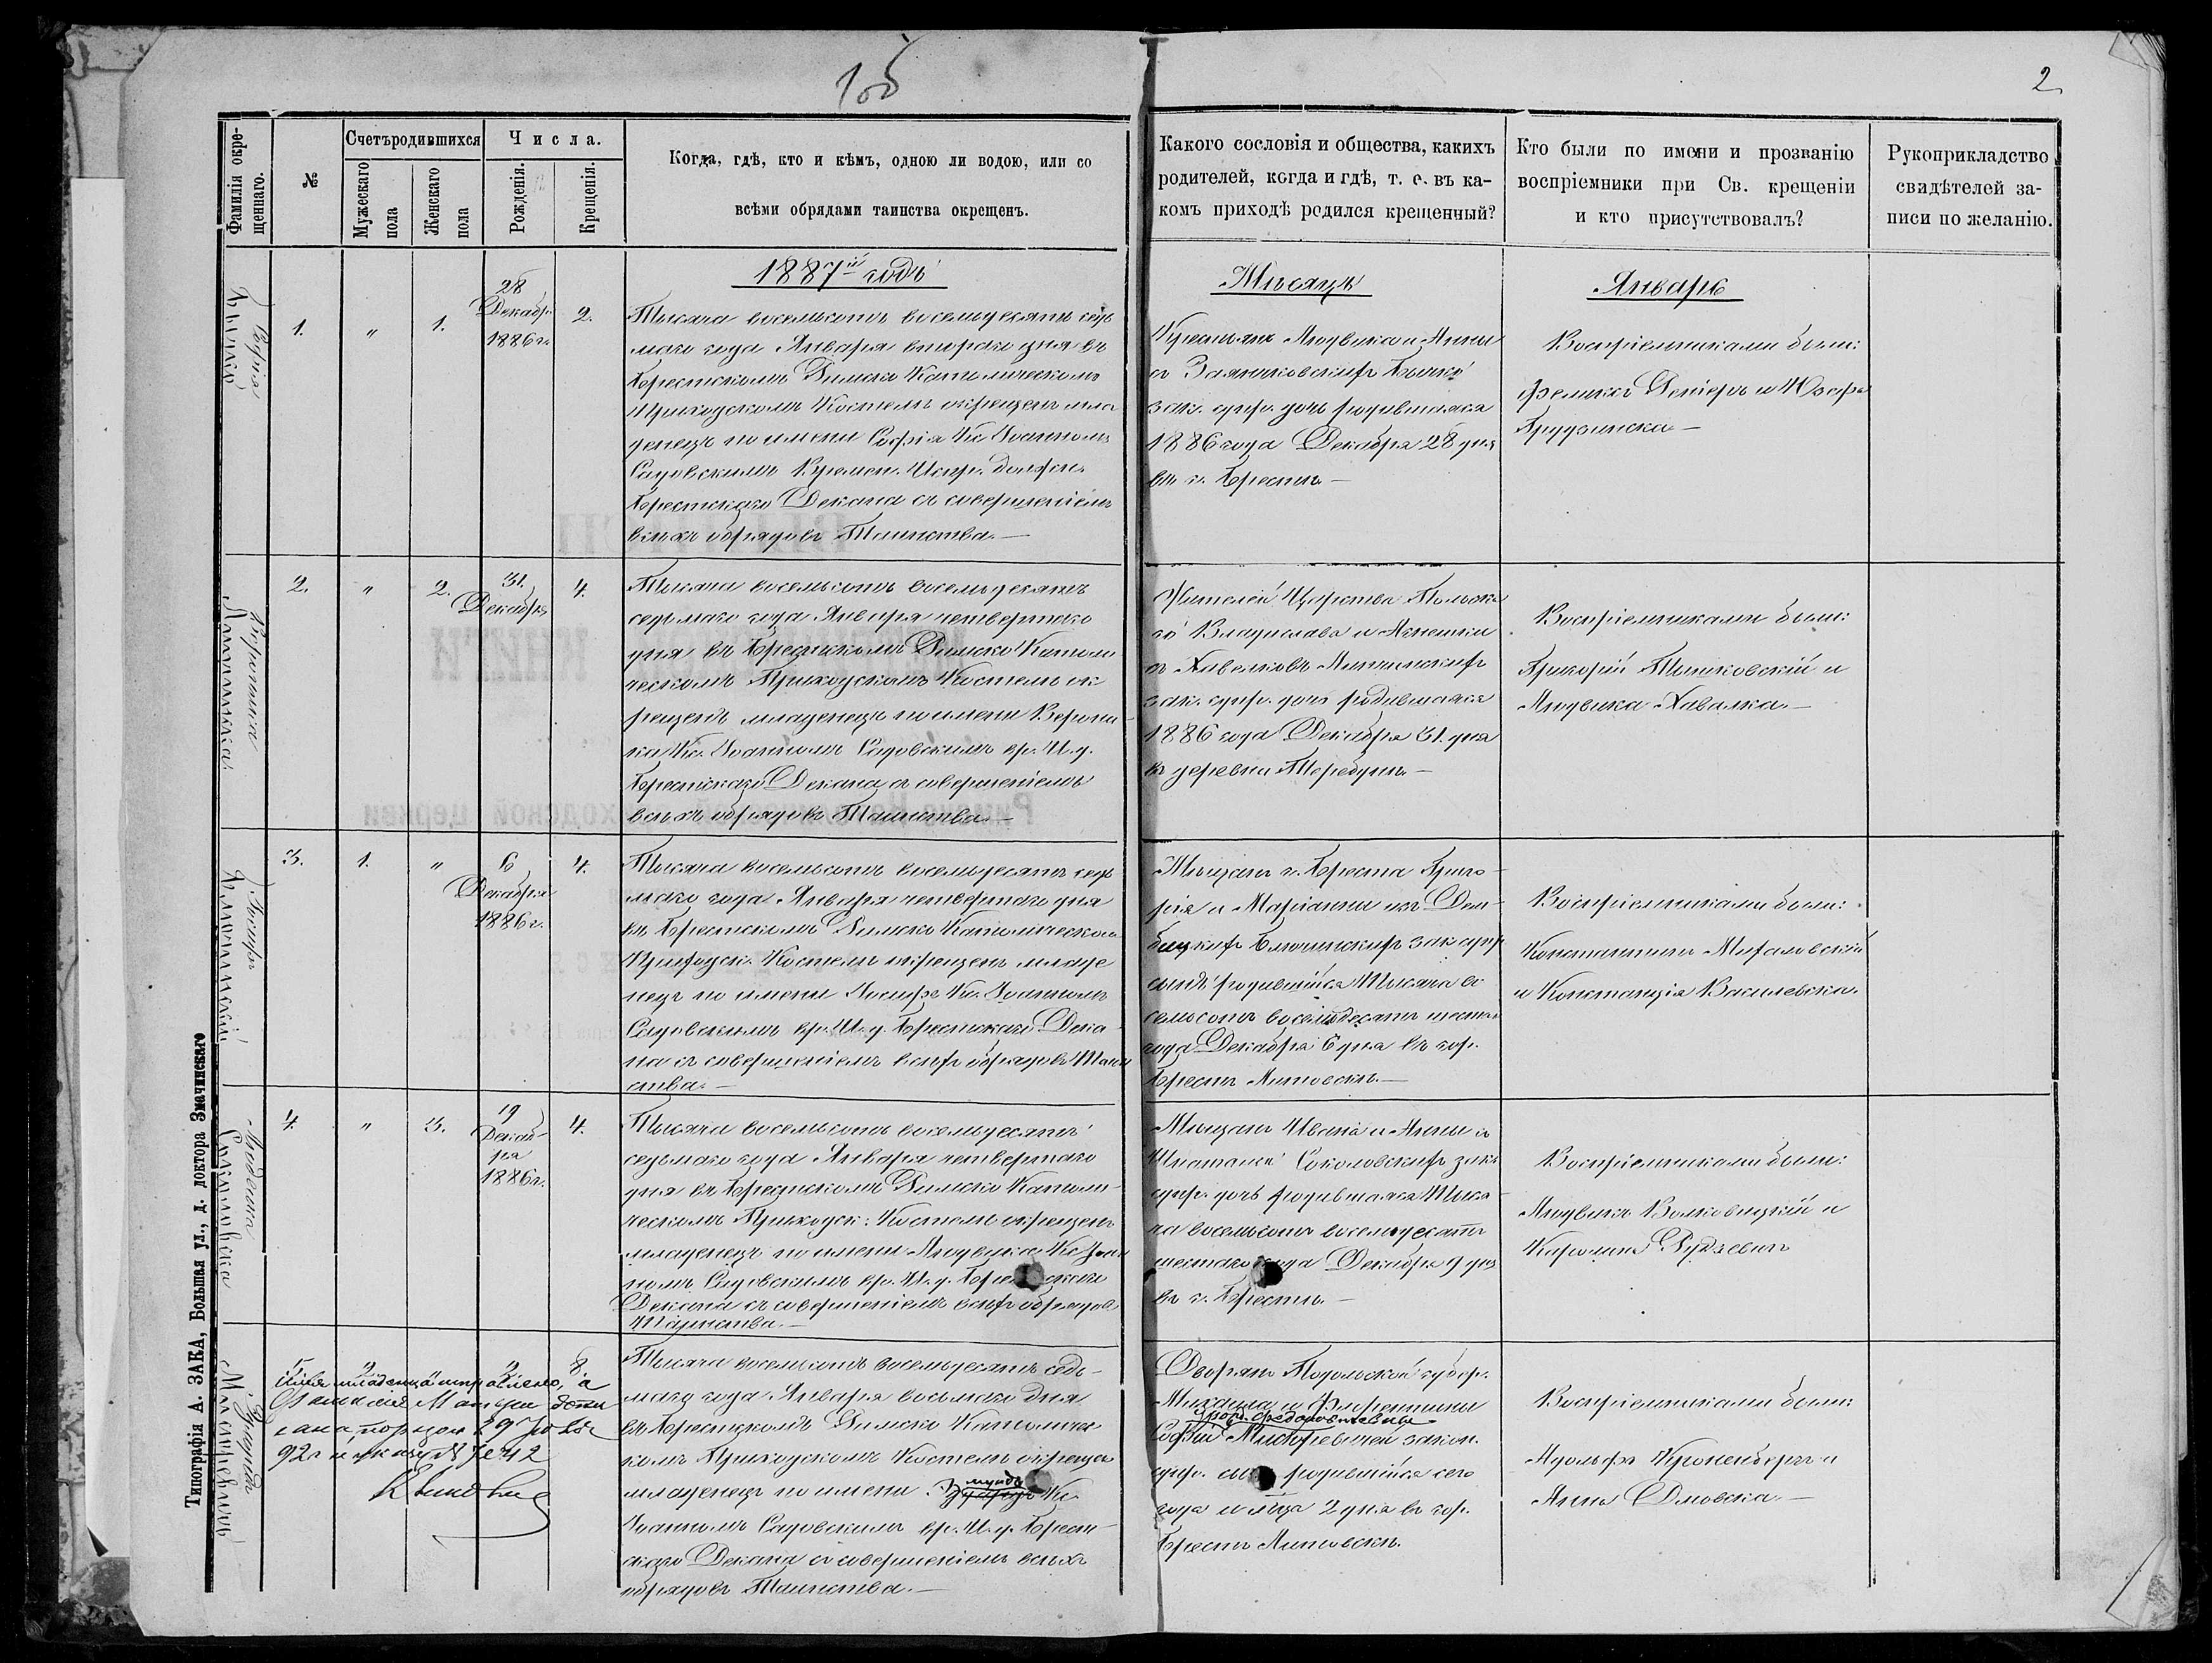 1об
2
Фамилія окре-
щеннаго.
№
Счетъ родившихся
Мужескаго
пола
Женскаго
пола
Числа.
Рожденія.
Крещенія.
Когда, гдѣ, кто и кѣмъ, одною ли водою, или со
всѣми обрядами таинства окрещенъ.
Какого сословія и общества, какихъ
родителей, когда и гдѣ, т. е. въ ка-
комъ приходѣ родился крещенный?
Кто были по имени и прозванію
воспріемники при Св. крещеніи
и кто присутствовалъ?
Рукоприкладство
свидѣтелей за-
писи по желанію.
1887й годъ
Мѣсяцъ
Январь
Софія
1.
"
1.
28
Декабр.
1886 г.
2.
Тысяча восемьсотъ восемьдесятъ седь
маго года Января втораго дня въ
Брестскомъ Римско Католическомъ
Приходскомъ Костелѣ окрещенъ мла
денецъ по имени Софія Кс. Іоанномъ
Садовскимъ Времен. Испр. должн.
Брестскаго Декана съ совершеніемъ
всѣхъ обрядовъ Таинства.—
Крестьянъ Людвика и Анны
зак. супр. дочь родившаяся
1886 года Декабря 28 дня
въ г. Брестѣ.—
Воспріемниками были:
Феликсъ и Юзефа
Вероника
2.
"
2.
31.
Декабря
4.
Тысяча восемьсотъ восемьдесятъ
седьмаго года Января четвертаго
дня въ Брестскомъ Римско Католи
ческомъ Приходскомъ Костелѣ ок
рещенъ младенецъ по имени Верони
ка Кс. Іоанномъ Садовскимъ вр. И. д.
Брестскаго Декана съ совершеніемъ
всѣхъ обрядовъ Таинства.—
Жителей Царства Польска
го Владислава и Агнешки
зак. супр. дочь родившаяся
1886 года Декабря 31 дня
въ деревни Теребунь.—
Воспріемниками были:
Григорій и
Людвика Хавалка.—
Іосифъ
3.
1.
"
6
Декабря
1886 г.
4.
Тысяча восемьсотъ восемьдесятъ седь
маго года Января четвертаго дня
въ Брестскомъ Римско Католическомъ
Приходск. Костелѣ окрещенъ младе
нецъ по имени Іосифъ Кс. Іоанномъ
Садовскимъ вр. И. д. Брестскаго Дека
на съ совершеніемъ всѣхъ обрядовъ Таин
ства.—
Мѣщанъ г. Бреста Григо-
рія и Маріанны изъ Дем-
бицкихъ зак. супр.
сынъ родившійся Тысяча во
семьсотъ восемьдесятъ шестаго
года Декабря 6 дня въ гор.
Брестъ Литовскѣ.—
Воспріемниками были:
Константинъ
и Констанція Василевска.
Людвика
Соколовска
4.
"
3.
19
Декаб-
ря
1886 г.
4.
Тысяча восемьсотъ восемьдесятъ
седьмаго года Января четвертаго
дня въ Брестскомъ Римско Католи-
ческомъ Приходск. Костелѣ окрещенъ
младенецъ по имени Людвика Кс. Іоан
номъ Садовскимъ вр. И. д. Брестскаго
Декана съ совершеніемъ всѣхъ обрядовъ
Таинства.—
Мѣщанъ Ивана и Анны съ
Соколовскихъ зак.
супр. дочь родившаяся Тыся
ча восемьсотъ восемьдесятъ
шестаго года Декабря 9 дня
въ г. Брестѣ.—
Воспріемниками были:
Людвикъ Волковицкій и
Каролина
5.
2
2
8.
Имя младенца исправлено, а
Тысяча восемьсотъ восемьдесятъ седь-
маго года Января восьмаго дня
въ Брестскомъ Римско Католичес
комъ Приходскомъ Костелѣ окрещенъ
младенецъ по имени Кс.
Іоанномъ Садовскимъ вр. И. д. Брест-
скаго Декана съ совершеніемъ всѣхъ
обрядовъ Таинства.—
Дворянъ Подольской губер.
Михаила и
закон.
супр. сынъ родившійся сего
года и м-ца 2 дня въ гор.
Брестъ Литовскѣ.
Воспріемниками были:
Адольфъ Кроненбергъ и
Анна Дмовска.—
Типографія А. ЗАКА, Большая ул., д. доктора Значинскаго